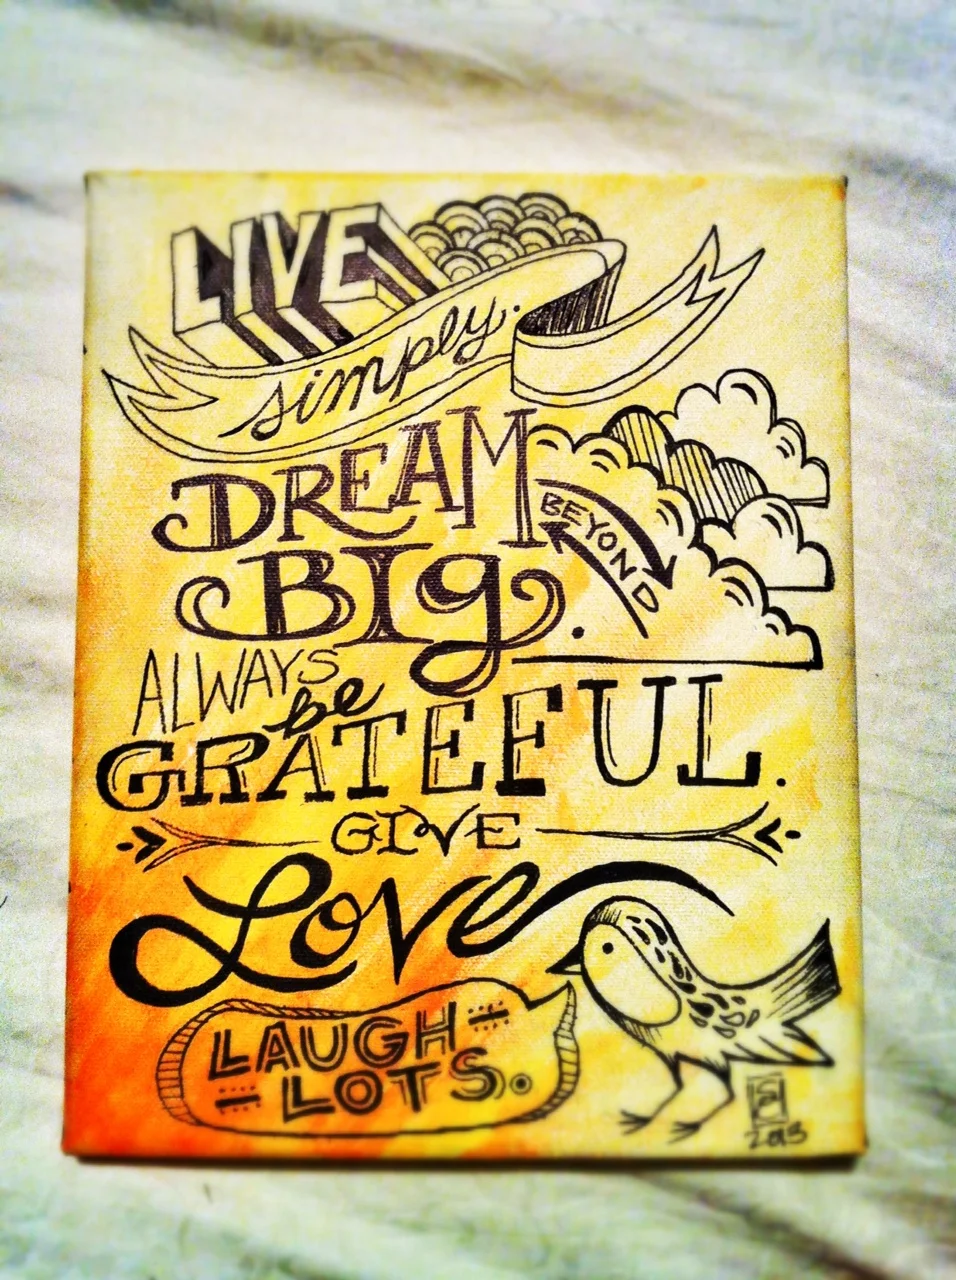 LIVE
simply.
DREAM
BEYOND
BIg.
ALWAYS
be
GRATEFUL.
GIVE
Love
LAUGH
LOTS.
2013